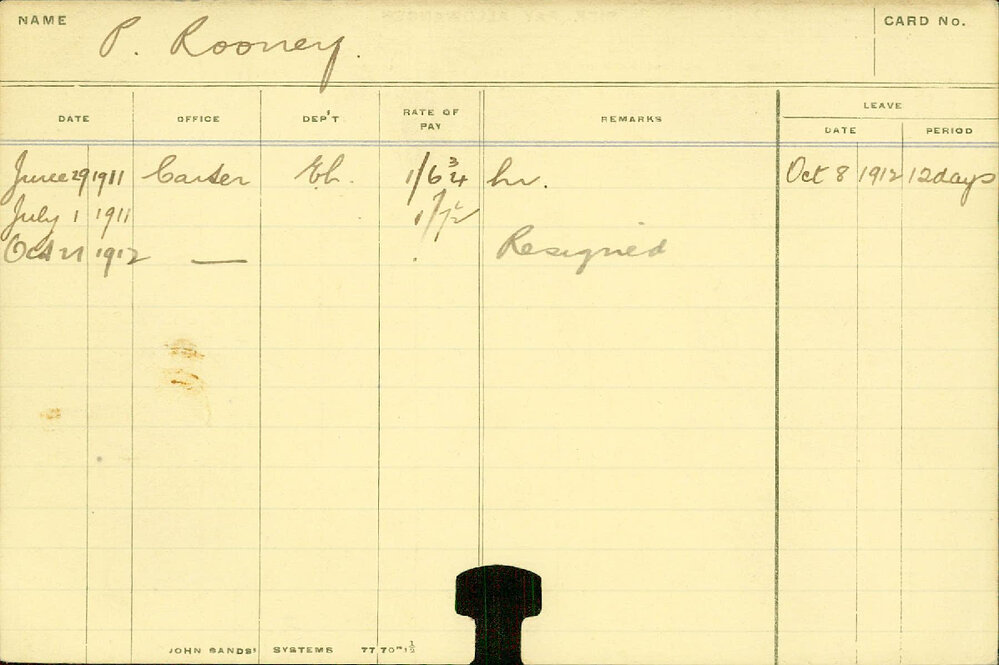 NAME P. Rooney. CARD No.
DATE OFFICE DEP'T RATE OF PAY REMARKS LEAVE
DATE PERIOD
June 29 1911 Carter 1/6 3/4 hr. Oct 8 1912 12 days
July 1 1911 1/7 1/2
Oct 21 1912 — Resigned
JOHN SANDS' SYSTEMS 77 70" 1/2